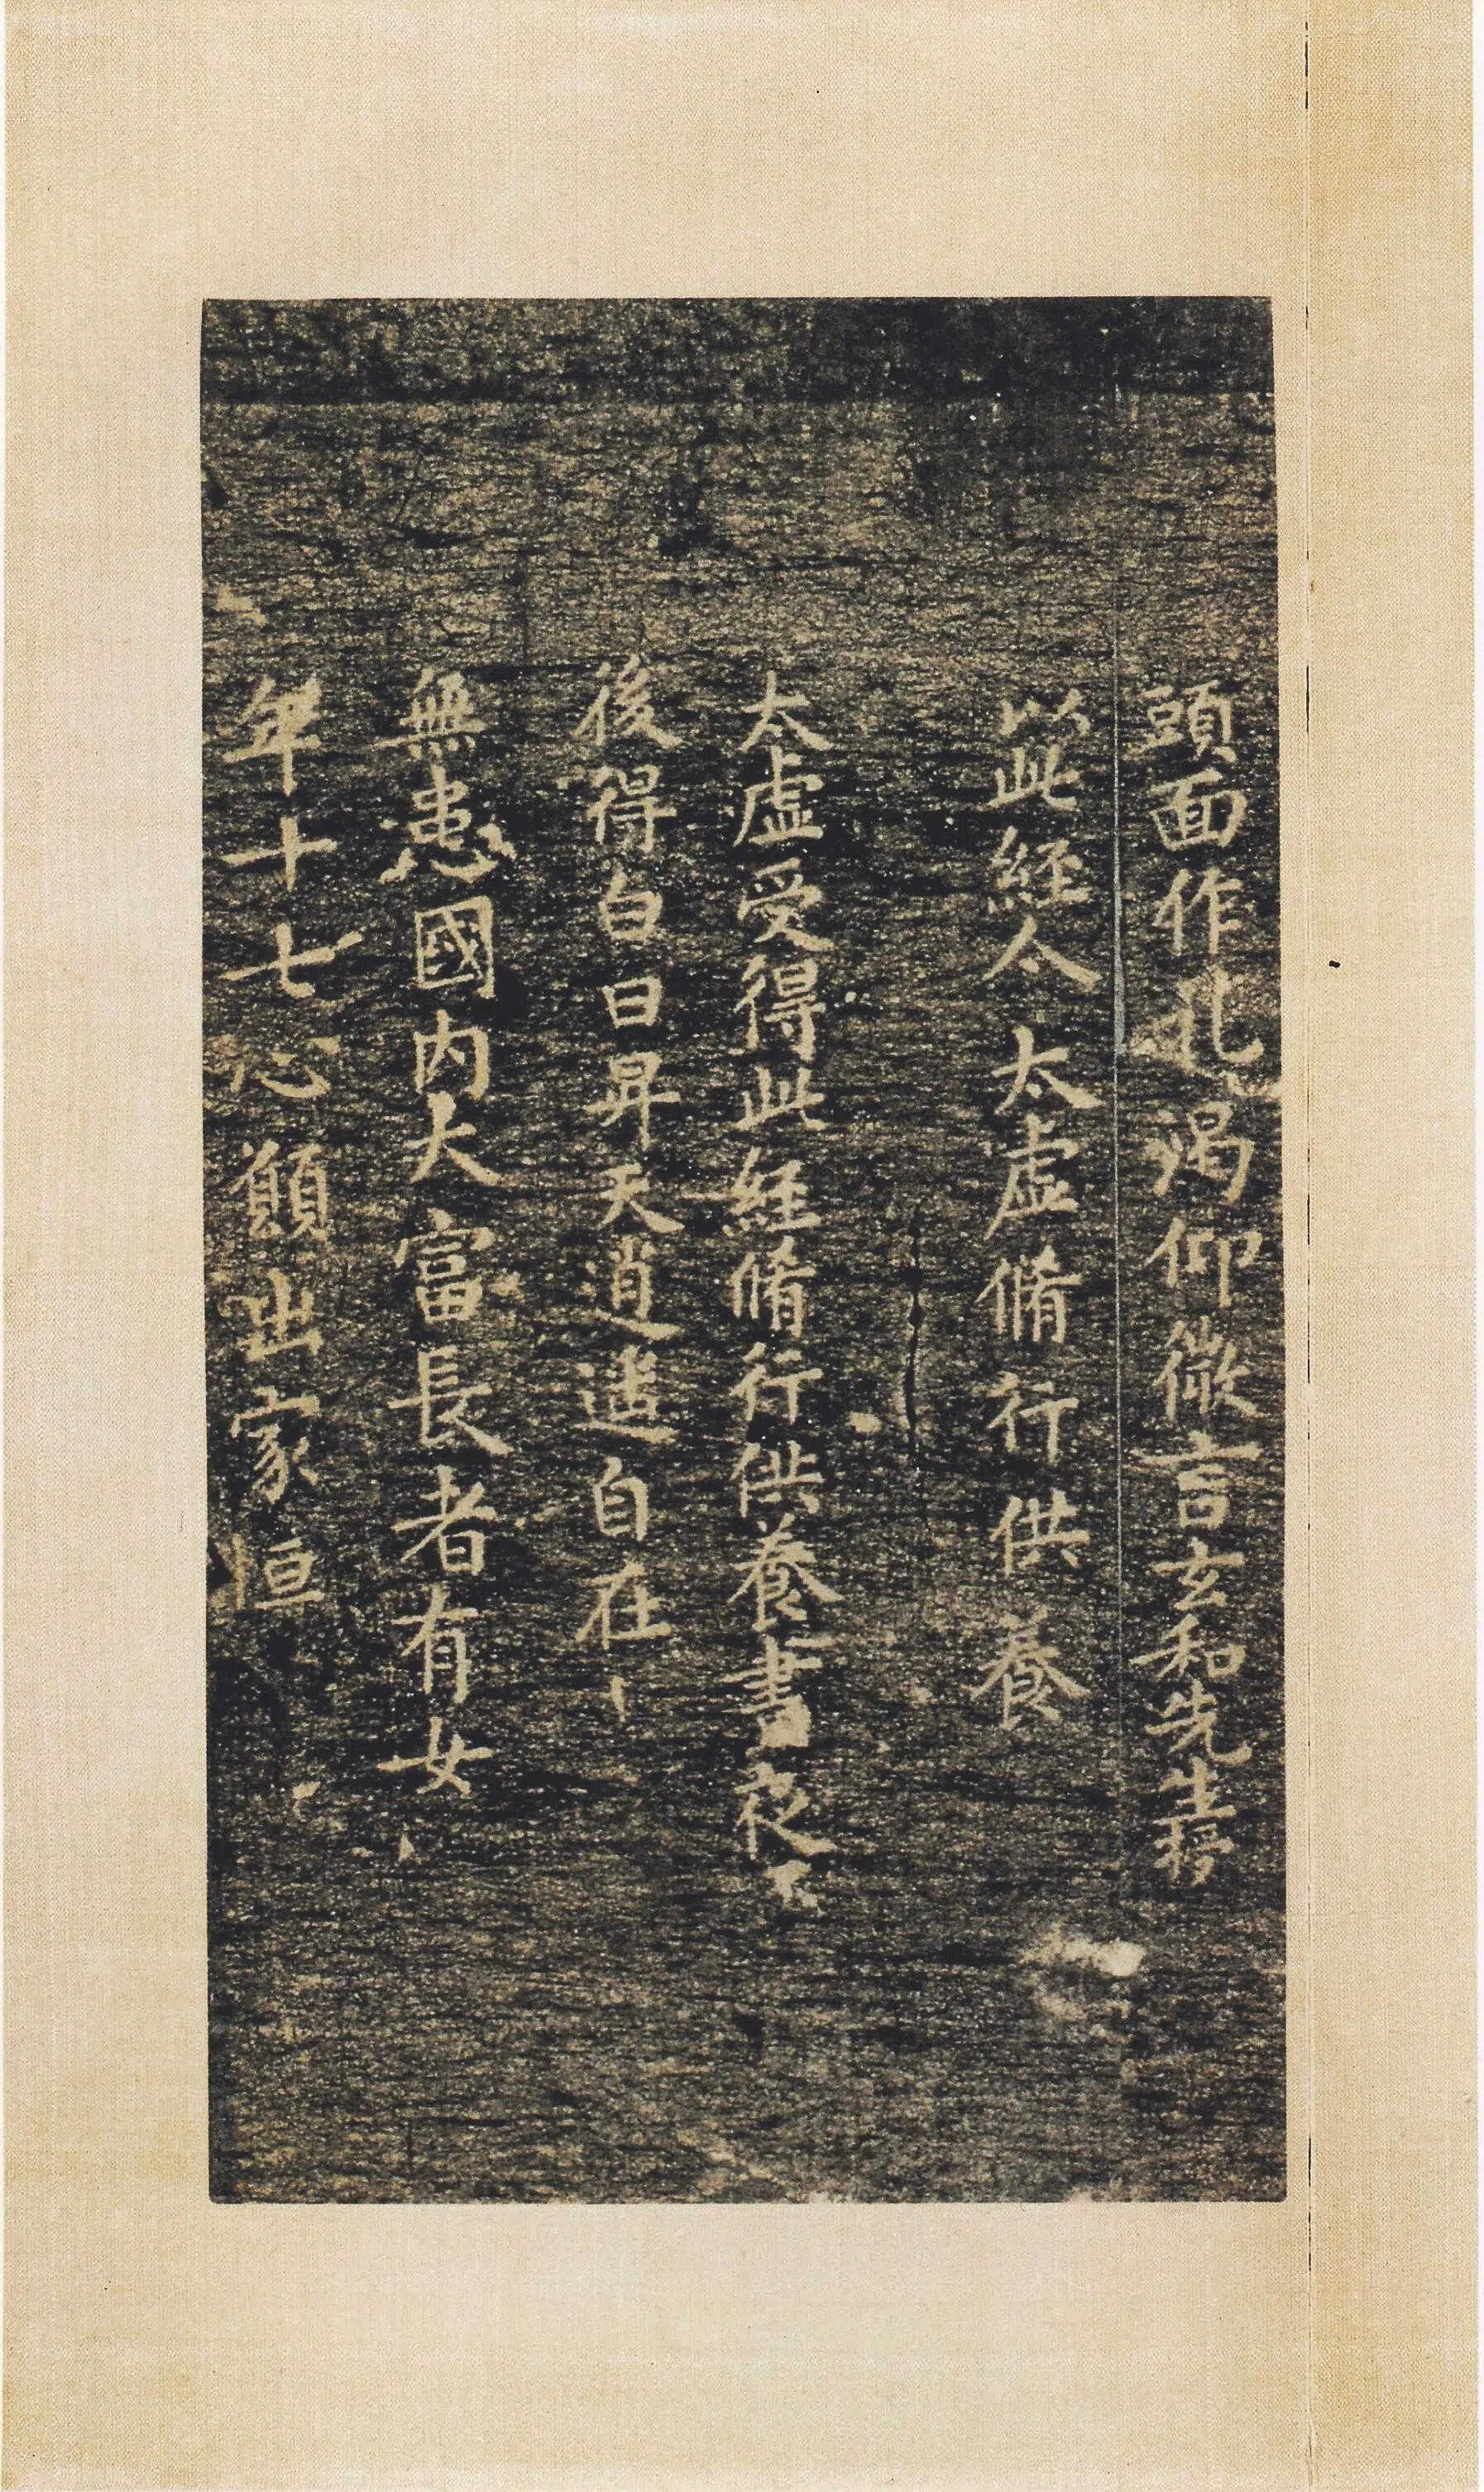 頭面作礼渴仰微言玄和先生授
以此経令太虛脩行供養
太虛受得此経脩行供養晝夜不
後得白日昇天逍遥自在
無恙國內大富長者有女
年十七心願出家恒